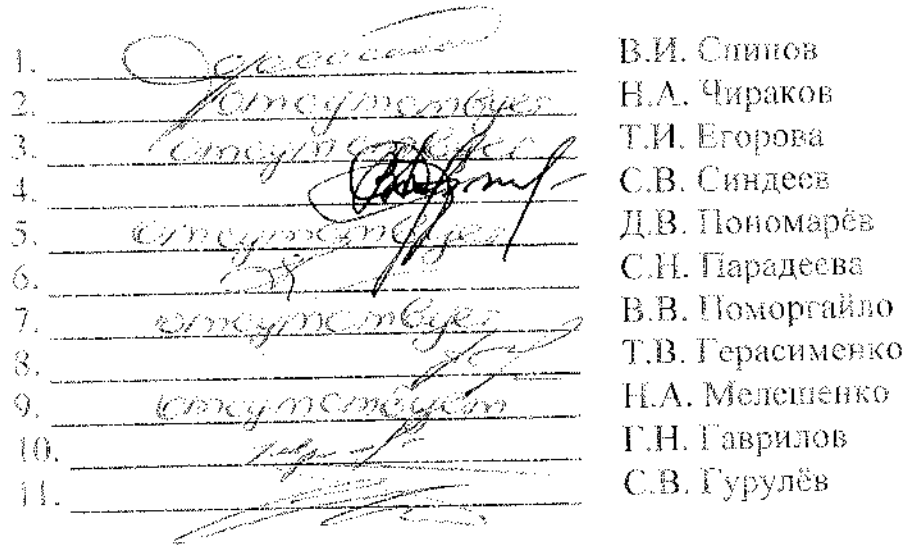 1. В.И. Спинов
2. отсутствует Н.А. Чираков
3. отсутствует Т.И. Егорова
4. С.В. Синдеев
5. отсутствует Д.В. Пономарёв
6. С.Н. Парадеева
7. отсутствует В.В. Поморгайло
8. Т.В. Герасименко
9. отсутствует Н.А. Мелешенко
10. Г.Н. Гаврилов
11. С.В. Гурулёв